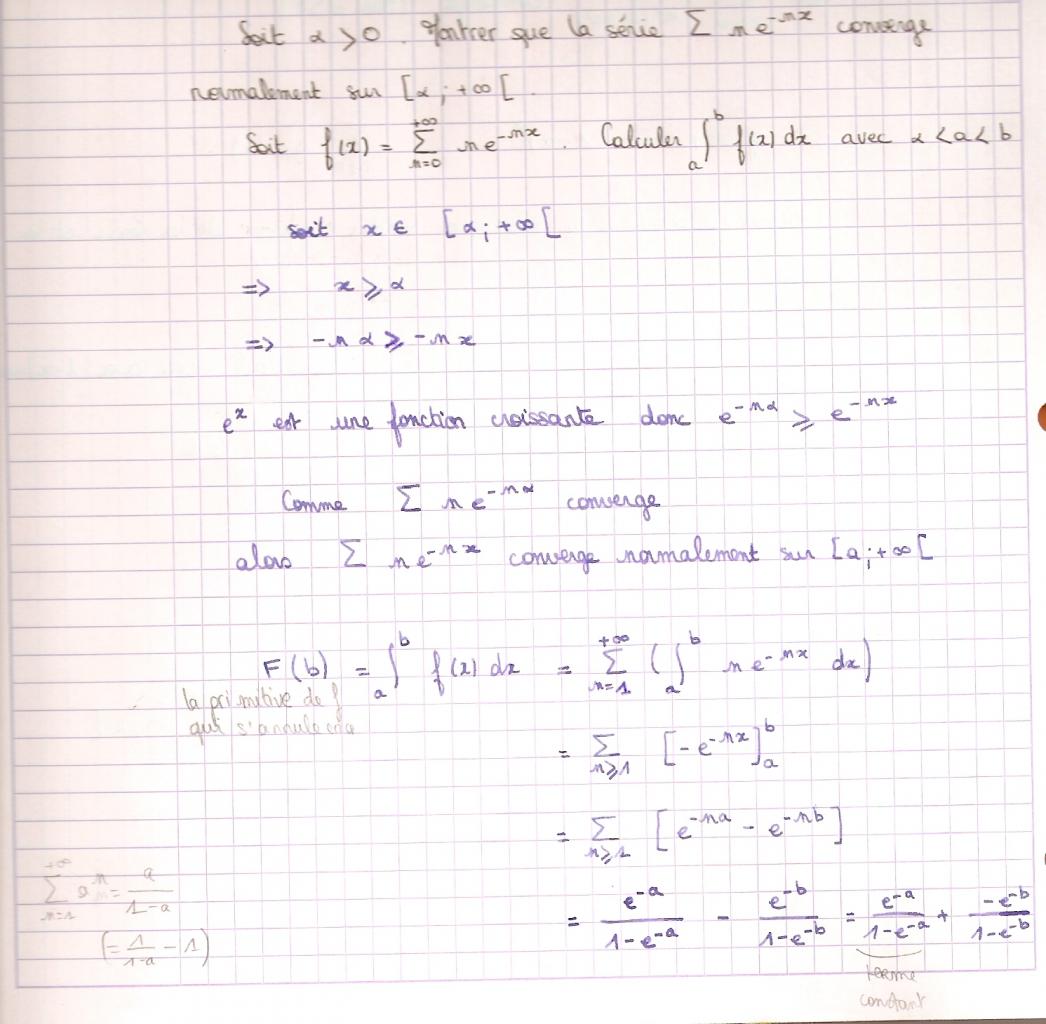 Soit α > 0. Montrer que la série Σ n e^{-nx} converge
normalement sur [α ; +∞[.
Soit f(x) = Σ_{n=0}^{+∞} n e^{-nx}. Calculer ∫_a^b f(x) dx avec α < a < b
soit x ∈ [α ; +∞[
=> x ⩾ α
=> -n α ⩾ -n x
e^x est une fonction croissante donc e^{-nα} ⩾ e^{-nx}
Comme Σ n e^{-nα} converge
alors Σ n e^{-nx} converge normalement sur [a ; +∞[
F(b) = ∫_a^b f(x) dx = Σ_{n=1}^{+∞} (∫_a^b n e^{-nx} dx)
la primitive de f
qui s'annule en a
= Σ_{n⩾1} [-e^{-nx}]_a^b
= Σ_{n⩾1} [e^{-na} - e^{-nb}]
= e^{-a}/(1-e^{-a}) - e^{-b}/(1-e^{-b}) = e^{-a}/(1-e^{-a}) + -e^{-b}/(1-e^{-b})
terme
constant
Σ_{n=1}^{+∞} a^n = a/(1-a)
(= 1/(1-a) - 1)